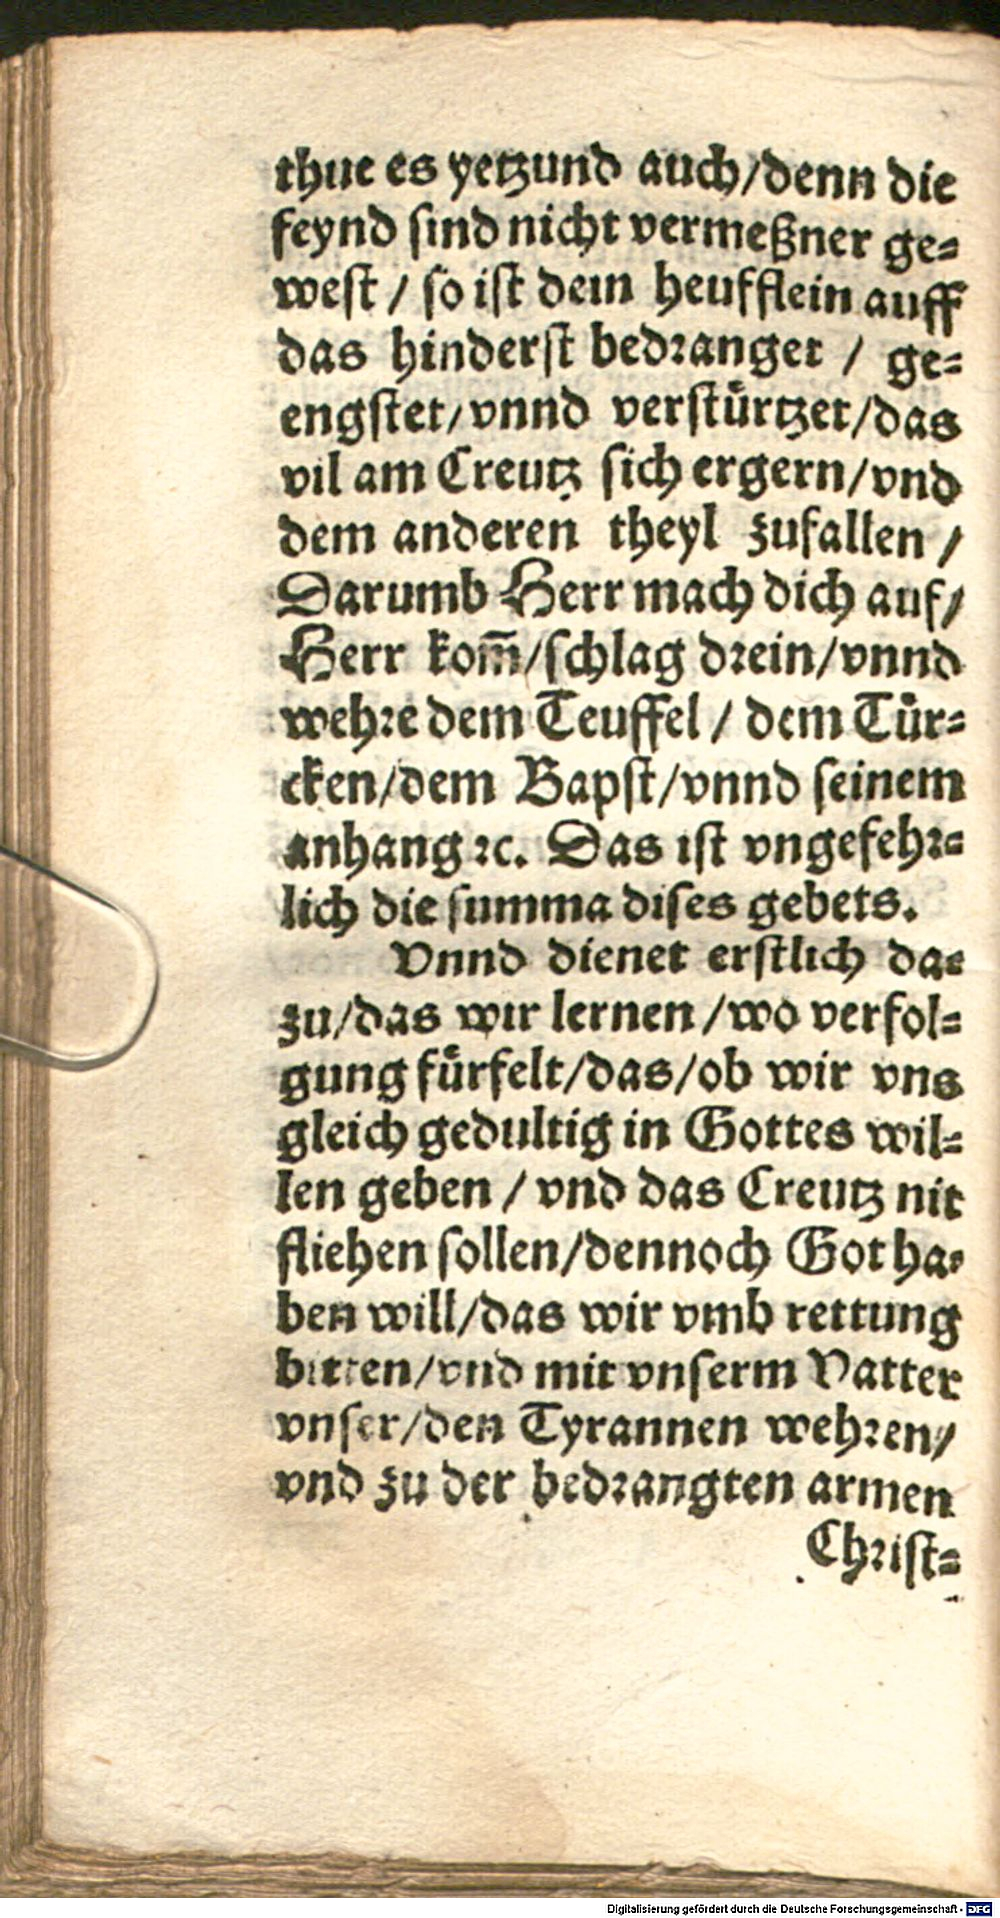 thue es yetzund auch/denn die
feynd sind nicht vermeßner ge=
west / so ist dein heufflein auff
das hinderst bedranget / ge=
engstet/vnnd verstuͤrtzet/das
vil am Creutz sich ergern/vnd
dem anderen theyl zufallen /
Darumb Herr mach dich auf/
Herr kom̃/schlag drein/vnnd
wehre dem Teuffel / dem Tuͤr=
cken/dem Bapst/vnnd seinem
anhang ꝛc. Das ist vngefehr=
lich die summa dises gebets.
Vnnd dienet erstlich da=
zu/das wir lernen /wo verfol=
gung fuͤrfelt/das/ob wir vns
gleich gedultig in Gottes wil=
len geben / vnd das Creutz nit
fliehen sollen/dennoch Got ha=
ben will/das wir vmb rettung
bitten/vnd mit vnserm Vatter
vnser/den Tyrannen wehren/
vnd zu der bedrangten armen
Christ=
Digitalisierung gefördert durch die Deutsche Forschungsgemeinschaft - DFG